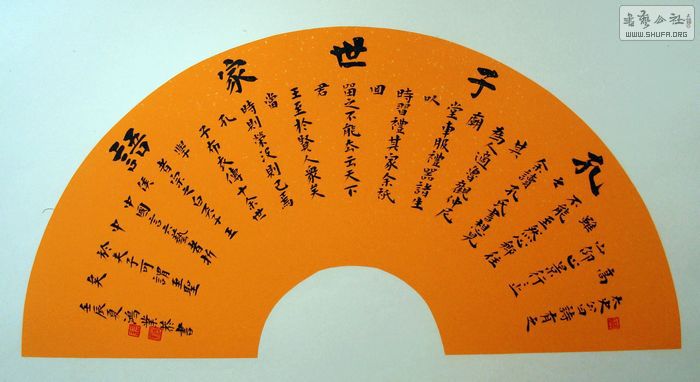 孔子世家語
太史公曰詩有之
高
山仰止景行行止
雖
不能至然心鄉往
之
余讀孔氏書想見
其
為人適魯觀仲尼
廟
堂車服禮器諸生
以
時習禮其家余祗
回
留之不能去云天下
君
王至於賢人衆矣
當
時則榮沒則已焉
孔
子布衣傳十余世
學
者宗之自天子王
侯
中國言六藝者折
中
於夫子可謂至聖
矣
壬辰夏鴻業恭書
書藝公社
WWW.SHUFA.ORG